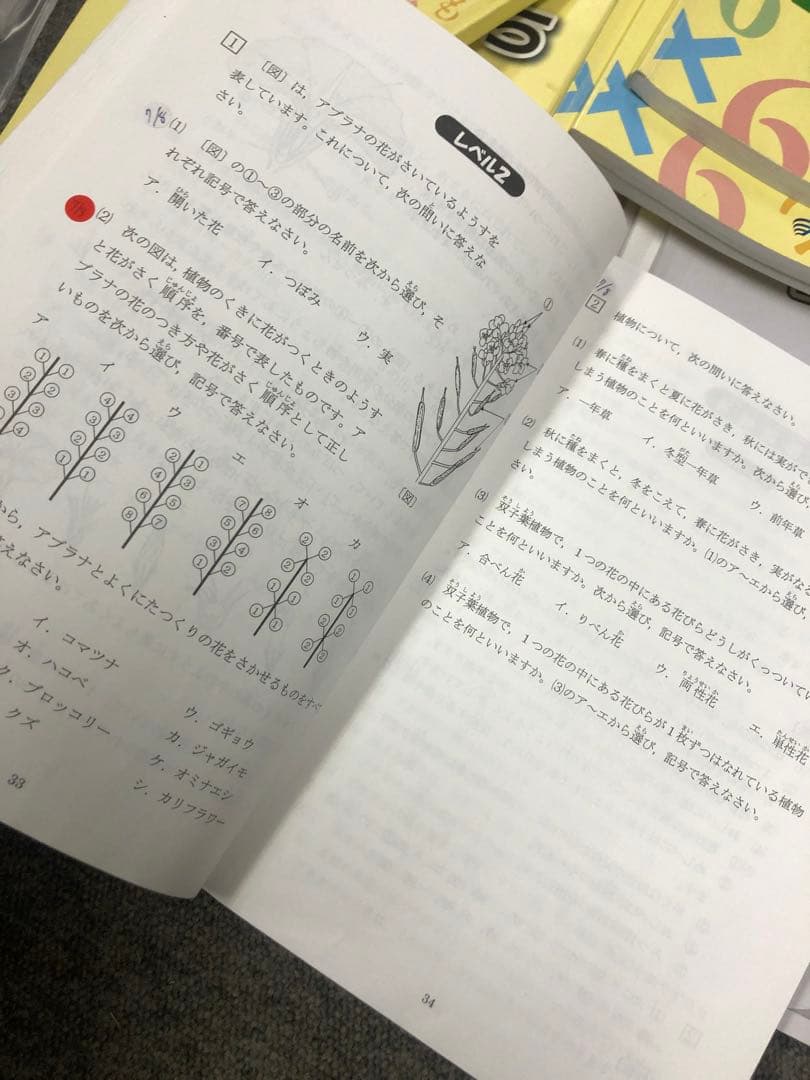 レベル2
1
〔図〕は，アブラナの花がさいているようすを
表しています。これについて，次の問いに答えな
さい。
7/8
(1) 〔図〕の①～③の部分の名前を次から選び，そ
れぞれ記号で答えなさい。
ア．開いた花 イ．つぼみ ウ．実
(2) 次の図は，植物のくきに花がつくときのようす
と花がさく順序を，番号で表したものです。ア
ブラナの花のつき方や花がさく順序として正し
いものを次から選び，記号で答えなさい。
①
〔図〕
ア イ ウ エ オ カ
から，アブラナとよくにたつくりの花をさかせるものをすべ
答えなさい。
イ．コマツナ ウ．ゴギョウ
オ．ハコベ カ．ジャガイモ
ク．ブロッコリー ケ．オミナエシ
クズ シ．カリフラワー
33
7/8
2 植物について，次の問いに答えなさい。
(1) 春に種をまくと夏に花がさき，秋には実ができ
しまう植物のことを何といいますか。次から選び，
ア．一年草 イ．冬型一年草 ウ．前年草
(2) 秋に種をまくと，冬をこえて，春に花がさき，実がなる
しまう植物のことを何といいますか。(1)のア～エから選び
さい。
(3) 双子葉植物で，1つの花の中にある花びらどうしがくっついてい
ことを何といいますか。次から選び，記号で答えなさい。
ア．合べん花 イ．りべん花 ウ．両性花 エ．単性花
(4) 双子葉植物で，1つの花の中にある花びらが1枚ずつはなれている植物
のことを何といいますか。(3)のア～エから選び，記号で答えなさい。
34